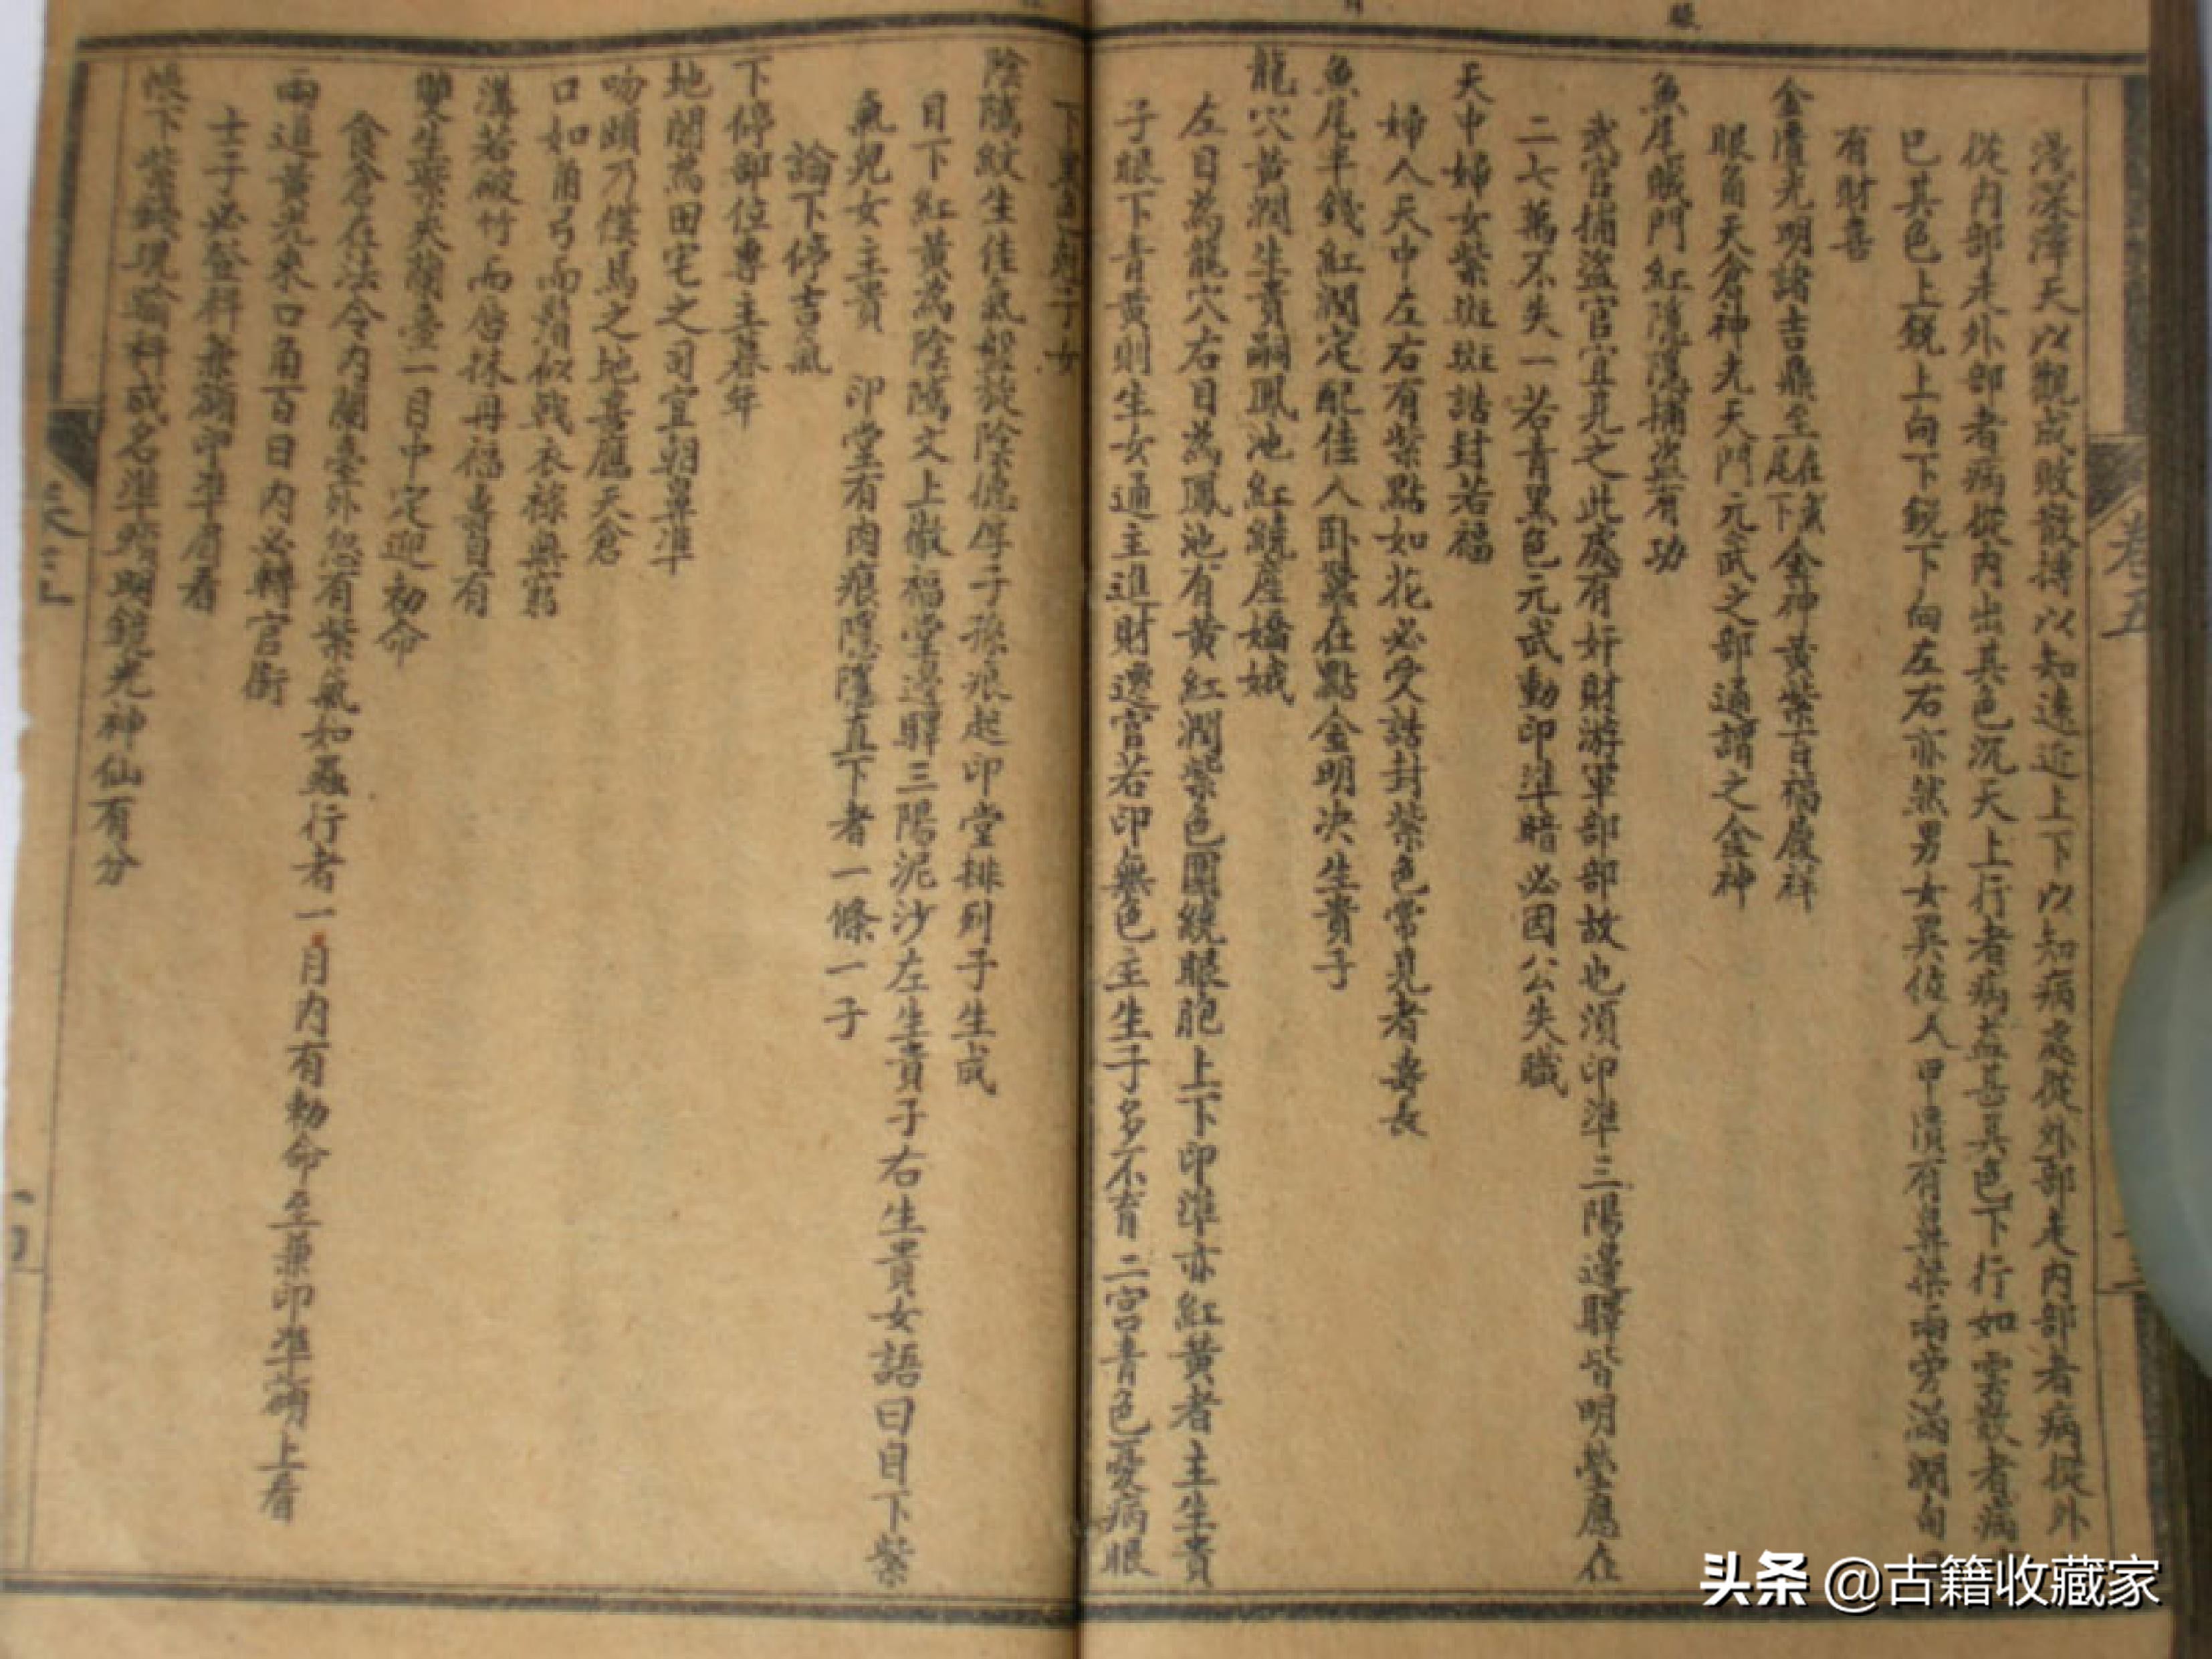 浅深澤夭以觀成敗散摶以知遠近上下以知病處從外部走內部者病從外
從內部走外部者病從內出其色沉夭上行者病益甚其色下行如雲散者病
已其色上銳上向下銳下向左右亦然男女異位人
有財喜
金匱光明諸吉鼎至
金神黃紫百福履祥
眼角天倉神光天門元武之部通謂之金神
魚尾賊門紅隱隱捕盜有功
武官捕盜官宜見之此處有奸財游軍部部故也須印準三陽邊驛皆明瑩應在
二七萬不失一若青黑色元武動印準暗必因公失職
天中婦女紫斑斑誥封若福
婦人天中左右有紫點如花必受誥封紫色常見者壽長
魚尾半錢紅潤定配佳人臥蠶在點金明決生貴子
龍穴黃潤生貴嗣鳳池紅繞產嬌娥
左目為龍穴右目為鳳池有黃紅潤紫色圍繞眼胞上下印準亦紅黃者主生貴
子眼下青黃則生女通主進財遷官若印無色主生子多不育二宮青色憂病眼
下黑色尅子女
陰隲紋生佳氣盤旋陰德厚子孫痕起印堂排列子生成
目下紅黃為陰隲文上徹福堂邊驛三陽泥沙左生貴子右生貴女語曰目下紫
氣兒女主貴 印堂有肉痕隱隱直下者一條一子
論下停吉氣
下停部位專主暮年
地閣為田宅之司宜朝鼻準
吻頤乃僕馬之地喜應天倉
口如角弓而鬚似戟衣祿無窮
溝若破竹而唇抹丹福壽自有
雙生紫夾蘭臺一目中定迎初命
食倉在法令內蘭臺外忽有紫氣如蟲行者一月內有勅命至兼印準額上看
兩道黃光來口角百日內必轉官銜
士子必登科兼額印準眉看
帳下紫錢現掄科成名準噟明鏡光神仙有分
卷五
頭條 @古籍收藏家